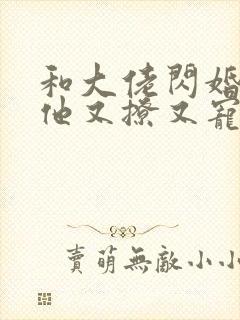 和大佬閃婚
他又撩又寵
賣萌無敵小小